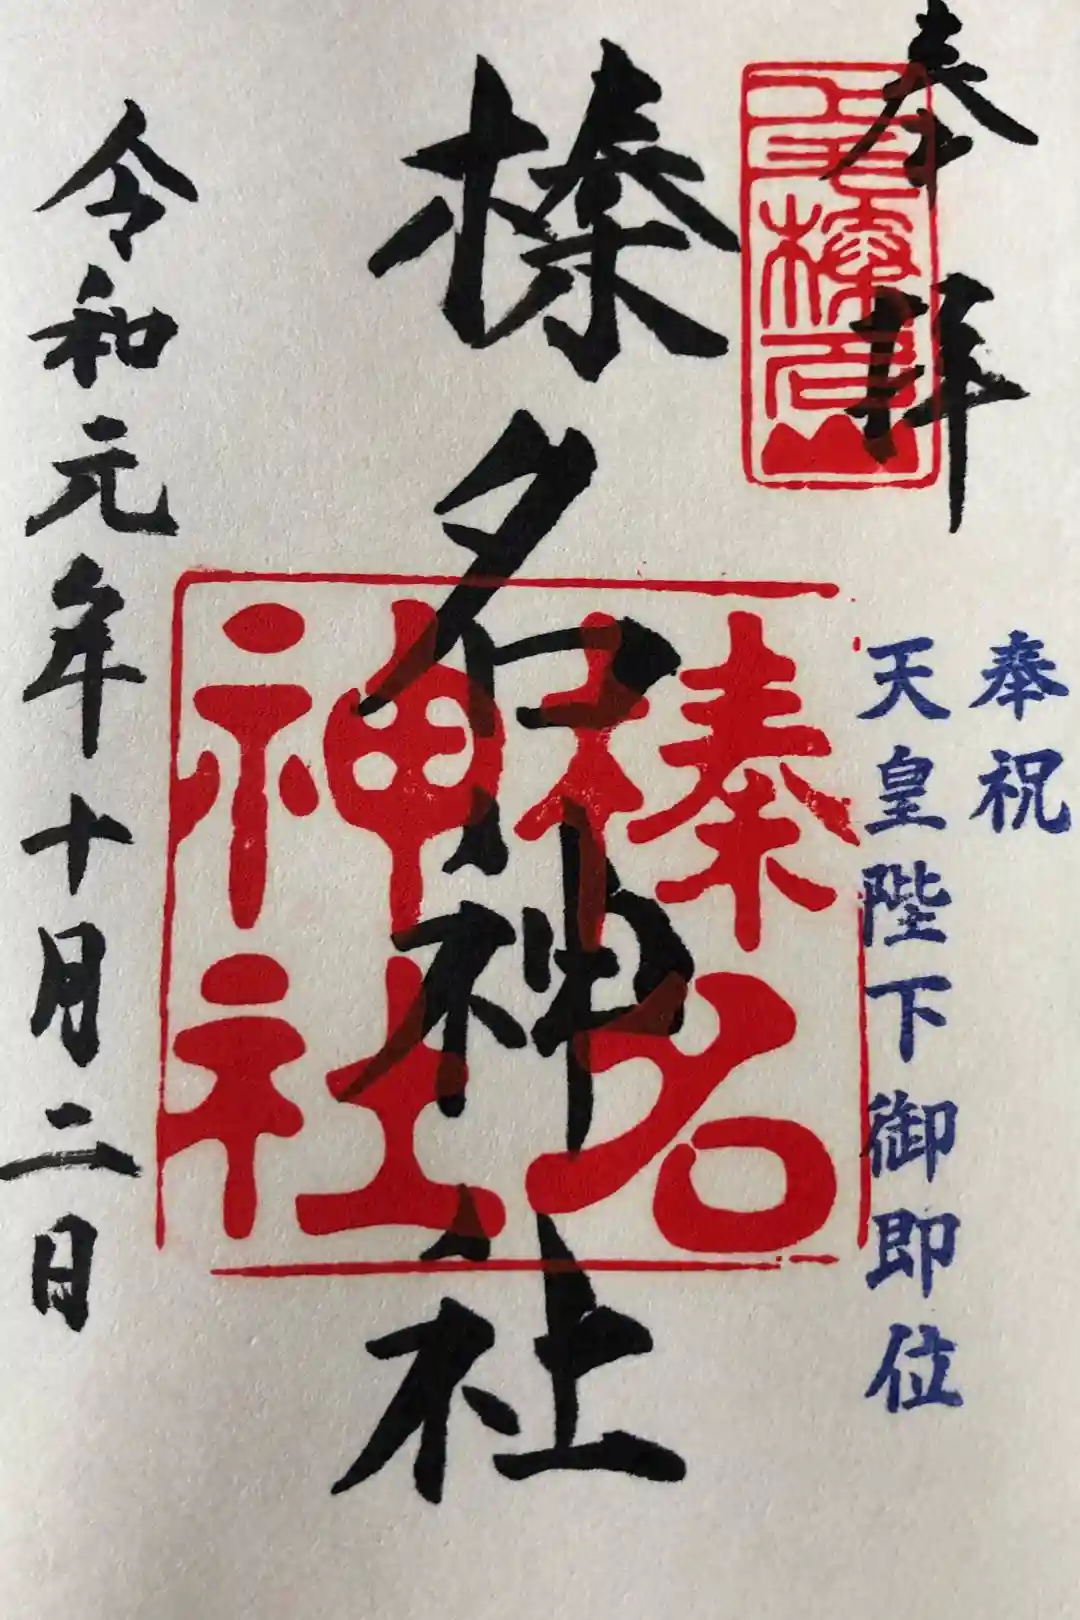 奉拝
奉祝
天皇陛下御即位
榛名神社
榛名
神社
令和元年十月二日